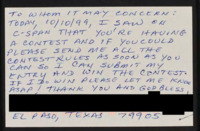 TO WHOM IT MAY CONCERN:
TODAY, 10/10/99, I SAW ON
C-SPAN THAT YOU'RE HAVING
A CONTEST AND IF YOU COULD
PLEASE SEND ME ALL THE
CONTEST RULES AS SOON AS YOU
CAN SO I CAN SUBMIT MY
ENTRY AND WIN THE CONTEST.
IF I DO WIN PLEASE LET ME KNOW
ASAP! THANK YOU AND GOD BLESS
EL PASO, TEXAS 79905